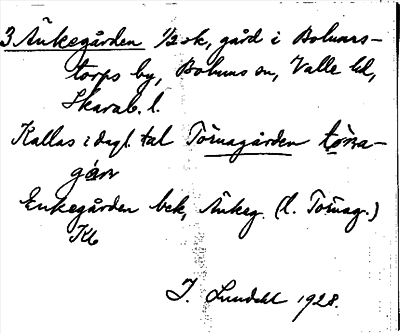 3 Änkegården 1/2 sk, gård i Bolums-
torps by, Bolums sn, Valle hd,
Skarab. l.
Kallas i dagl. tal Törnagården törna-
gårn
Enkegården bek, Änkeg. (l. Törnag.)
Kb
J. Lundahl 1928.